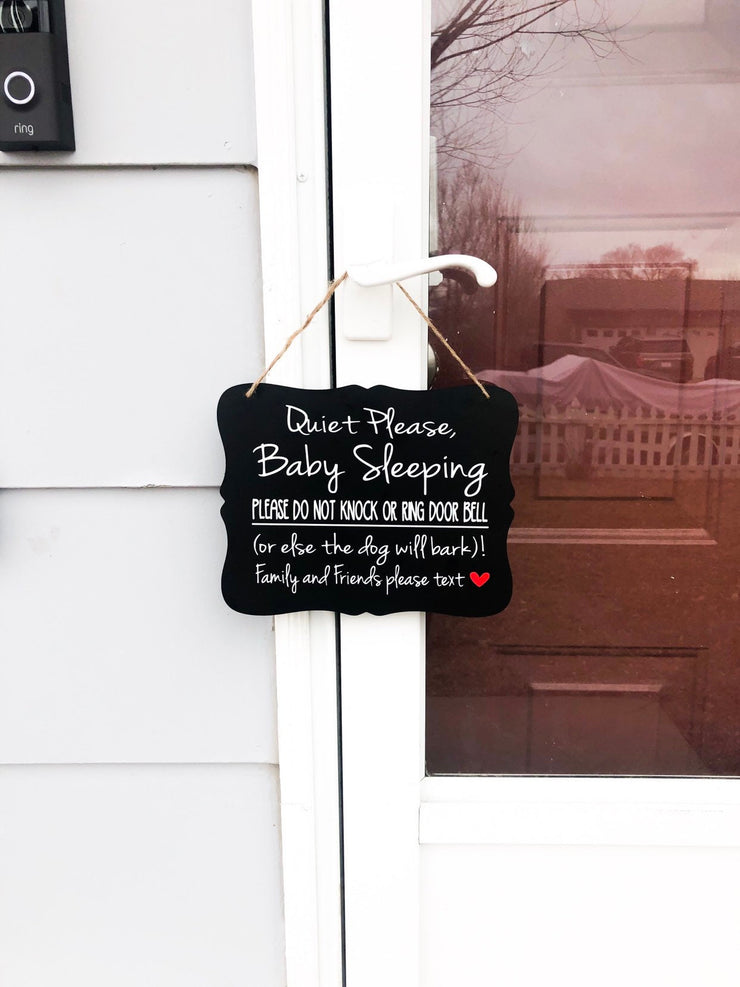 ring
Quiet Please,
Baby Sleeping
PLEASE DO NOT KNOCK OR RING DOOR BELL
(or else the dog will bark)!
Family and Friends please text ❤